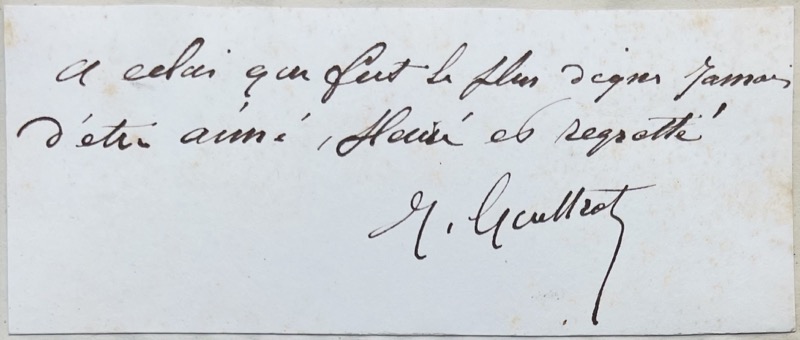 A celui qui fut le plus digne Jamais
d'être aimé, pleuré et regretté